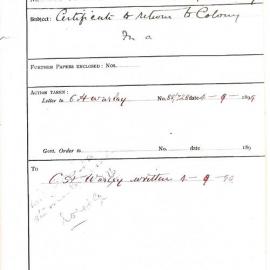 Subject: Certificate to return to Colony
In a
FURTHER PAPERS ENCLOSED: Nos.
ACTION TAKEN:
Letter to C H Warley No. date 4 - 9 - 1896
Govt. Order to No. date 189
To
C. H Warley written 4 - 9 - 96